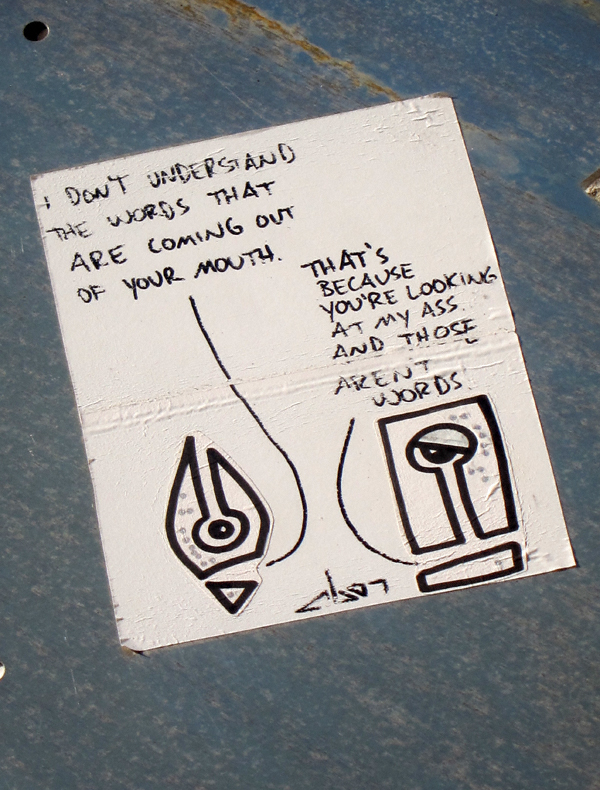 I DON'T UNDERSTAND
THE WORDS THAT
ARE COMING OUT
OF YOUR MOUTH.
THAT'S
BECAUSE
YOU'RE LOOKING
AT MY ASS
AND THOSE
ARENT
WORDS